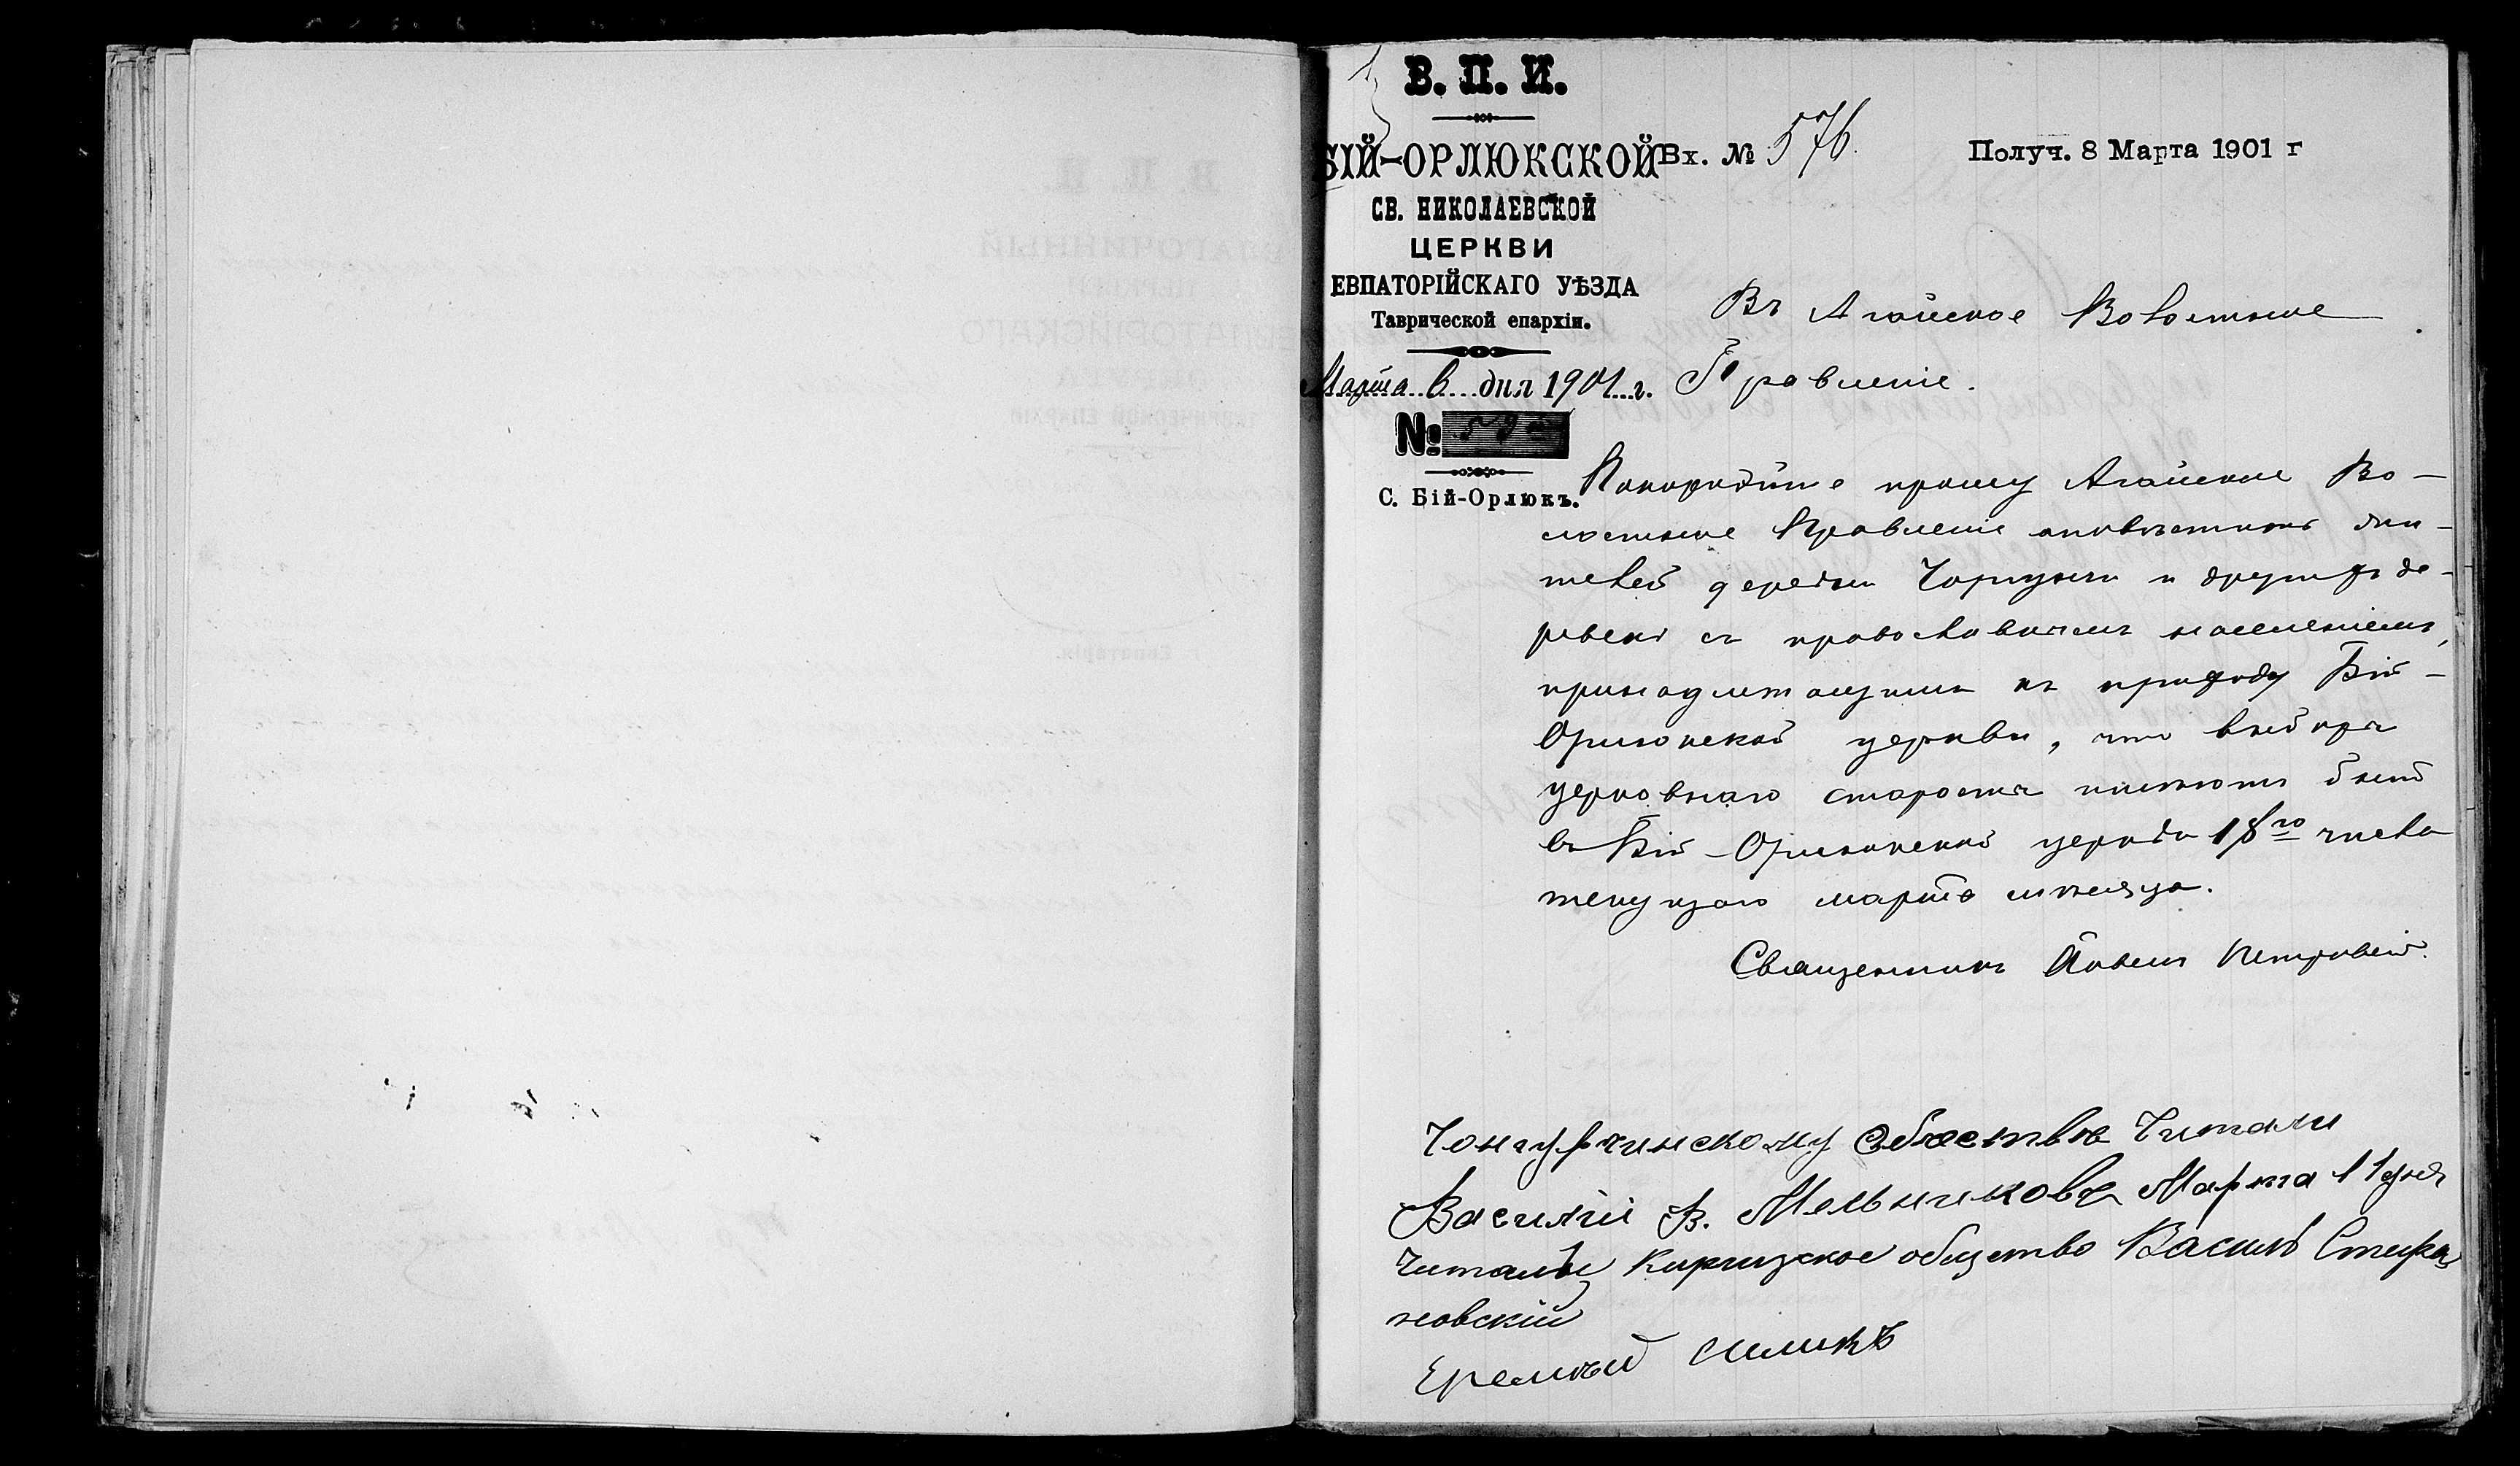 В. П. И.
БІЙ-ОРЛЮКСКОЙ
СВ. НИКОЛАЕВСКОЙ
ЦЕРКВИ
ЕВПАТОРІЙСКАГО УѢЗДА
Таврической епархіи.
Марта 6 дня 1901 г.
№
С. Бій-Орлюкъ.
Вх. № 576
Получ. 8 Марта 1901 г
Въ Агайское Волостное
Правленіе.
Покорнѣйше прошу Агайское Во-
лостное Правленіе оповѣстить жи-
телей деревни и другихъ де-
ревень съ православнымъ населеніемъ,
принадлежащими къ приходу Бій-
Орлюкской церкви, что выборы
церковнаго старосты имѣютъ быть
въ Бій-Орлюкской церкви 18го числа
текущаго марта мѣсяца.
Священникъ Павелъ Петровскій.
Чонгурчинскому Читали
Василій В. Мельниковъ Марта 11 дня
Читалъ Киргизское общество Василь Стефа
новскій